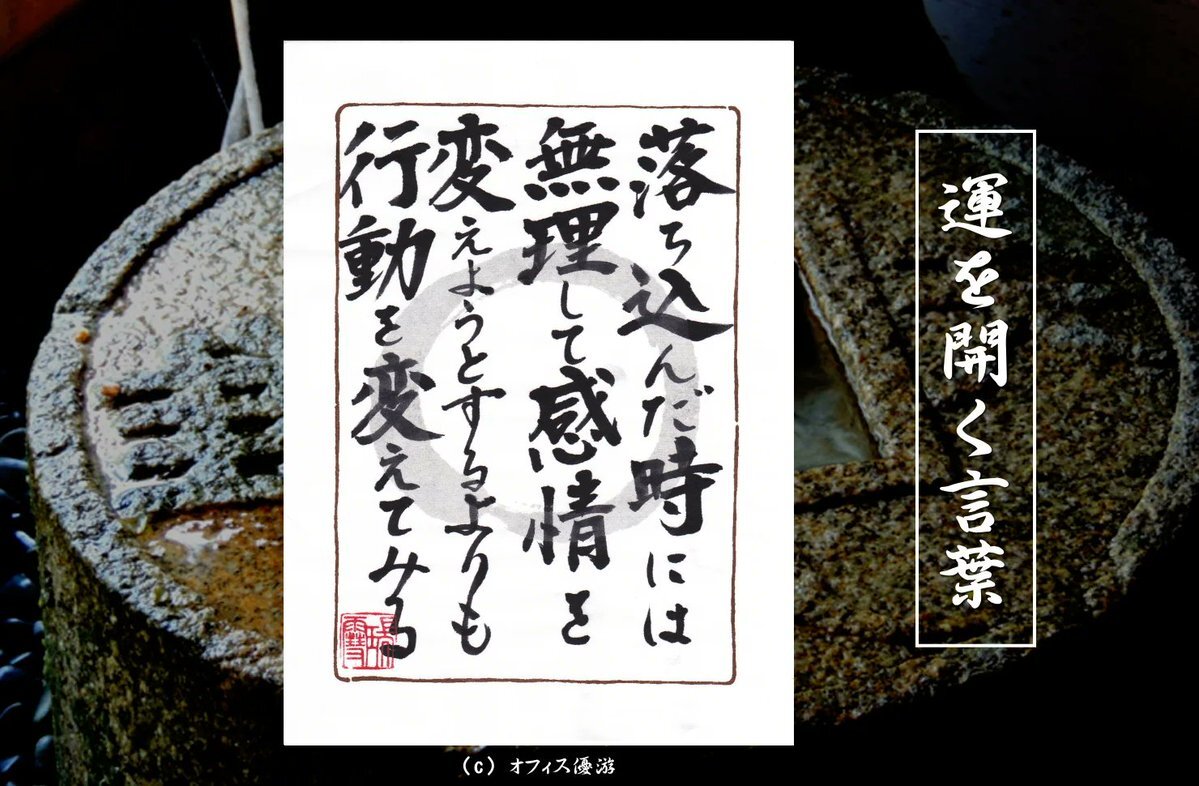 運を開く言葉
落ち込んだ時には
無理して感情を
変えようとするよりも
行動を変えてみる
(c) オフィス優游